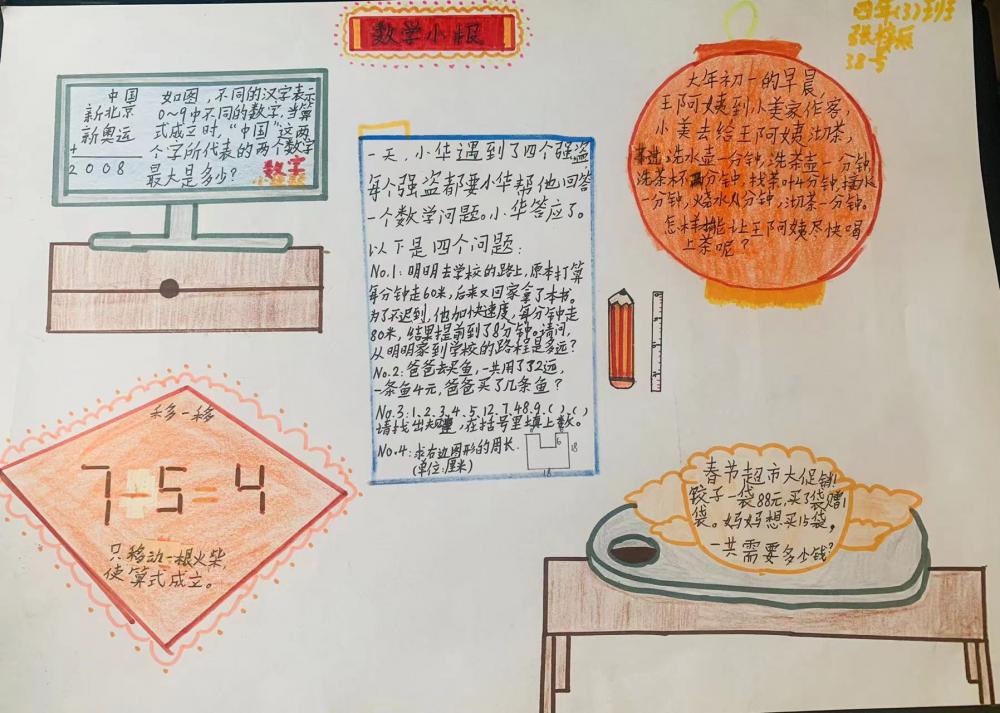 数学小报
四年(3)班
38号
中国
新北京
新奥运
+
2008
如图，不同的汉字表示
0~9中不同的数字，当算
式成立时，“中国”这两
个字所代表的两个数字
最大是多少？
数字
一天，小华遇到了四个强盗
每个强盗都要小华帮他回答
一个数学问题。小华答应了。
以下是四个问题：
No.1：明明去学校的路上，原本打算
每分钟走60米，后来又回家拿了本书。
为了不迟到，他加快速度，每分钟走
80米，结果提前到了8分钟。请问，
从明明家到学校的路程是多远？
No.2：爸爸去买鱼，一共用了32远，
一条鱼4元，爸爸买了几条鱼？
No.3：1.2.3.4.5.12.7.48.9.( ).( )
请找出规律，在括号里填上数。
No.4：求右边图形的周长.
(单位：厘米)
6
18
18
大年初一的早晨，
王阿姨到小美家作客，
小美去给王阿姨沏茶，
洗水壶一分钟，洗茶壶一分钟
洗茶杯两分钟，找茶叶4分钟，接水
一分钟，烧水八分钟，沏茶一分钟。
怎样能让王阿姨尽快喝
上茶呢？
移一移
7-5=4
只移动一根火柴，
使算式成立。
春节超市大促销！
饺子一袋88元，买了袋赠1
袋。妈妈想买15袋，
一共需要多少钱？